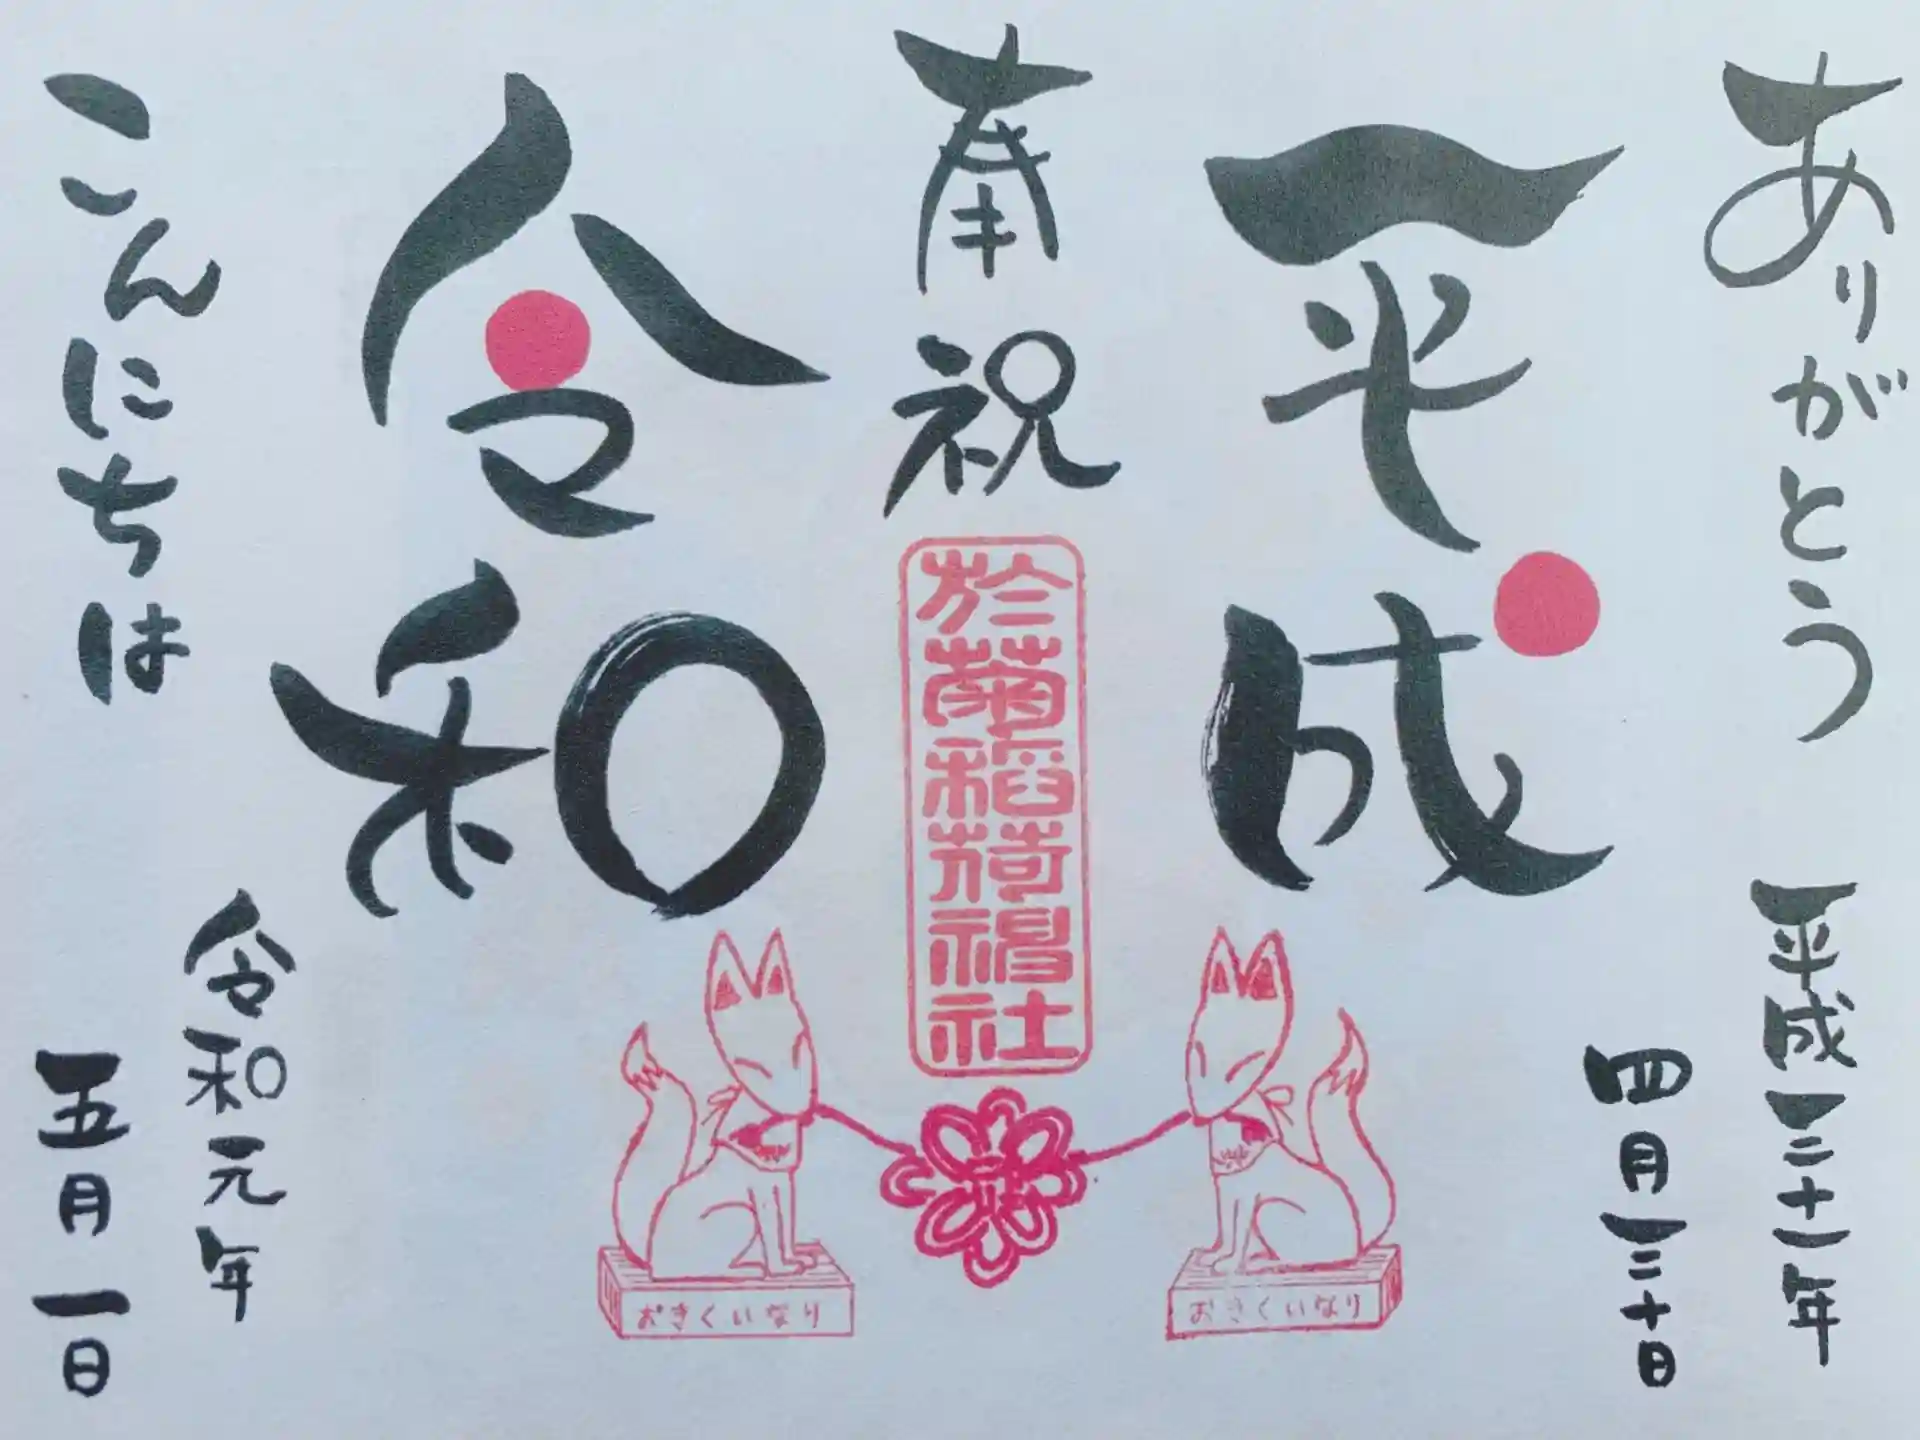 ありがとう
平成
平成三十一年
四月三十日
奉祝
於菊稲荷神社
令和
こんにちは
令和元年
五月一日
おきくいなり
おきくいなり